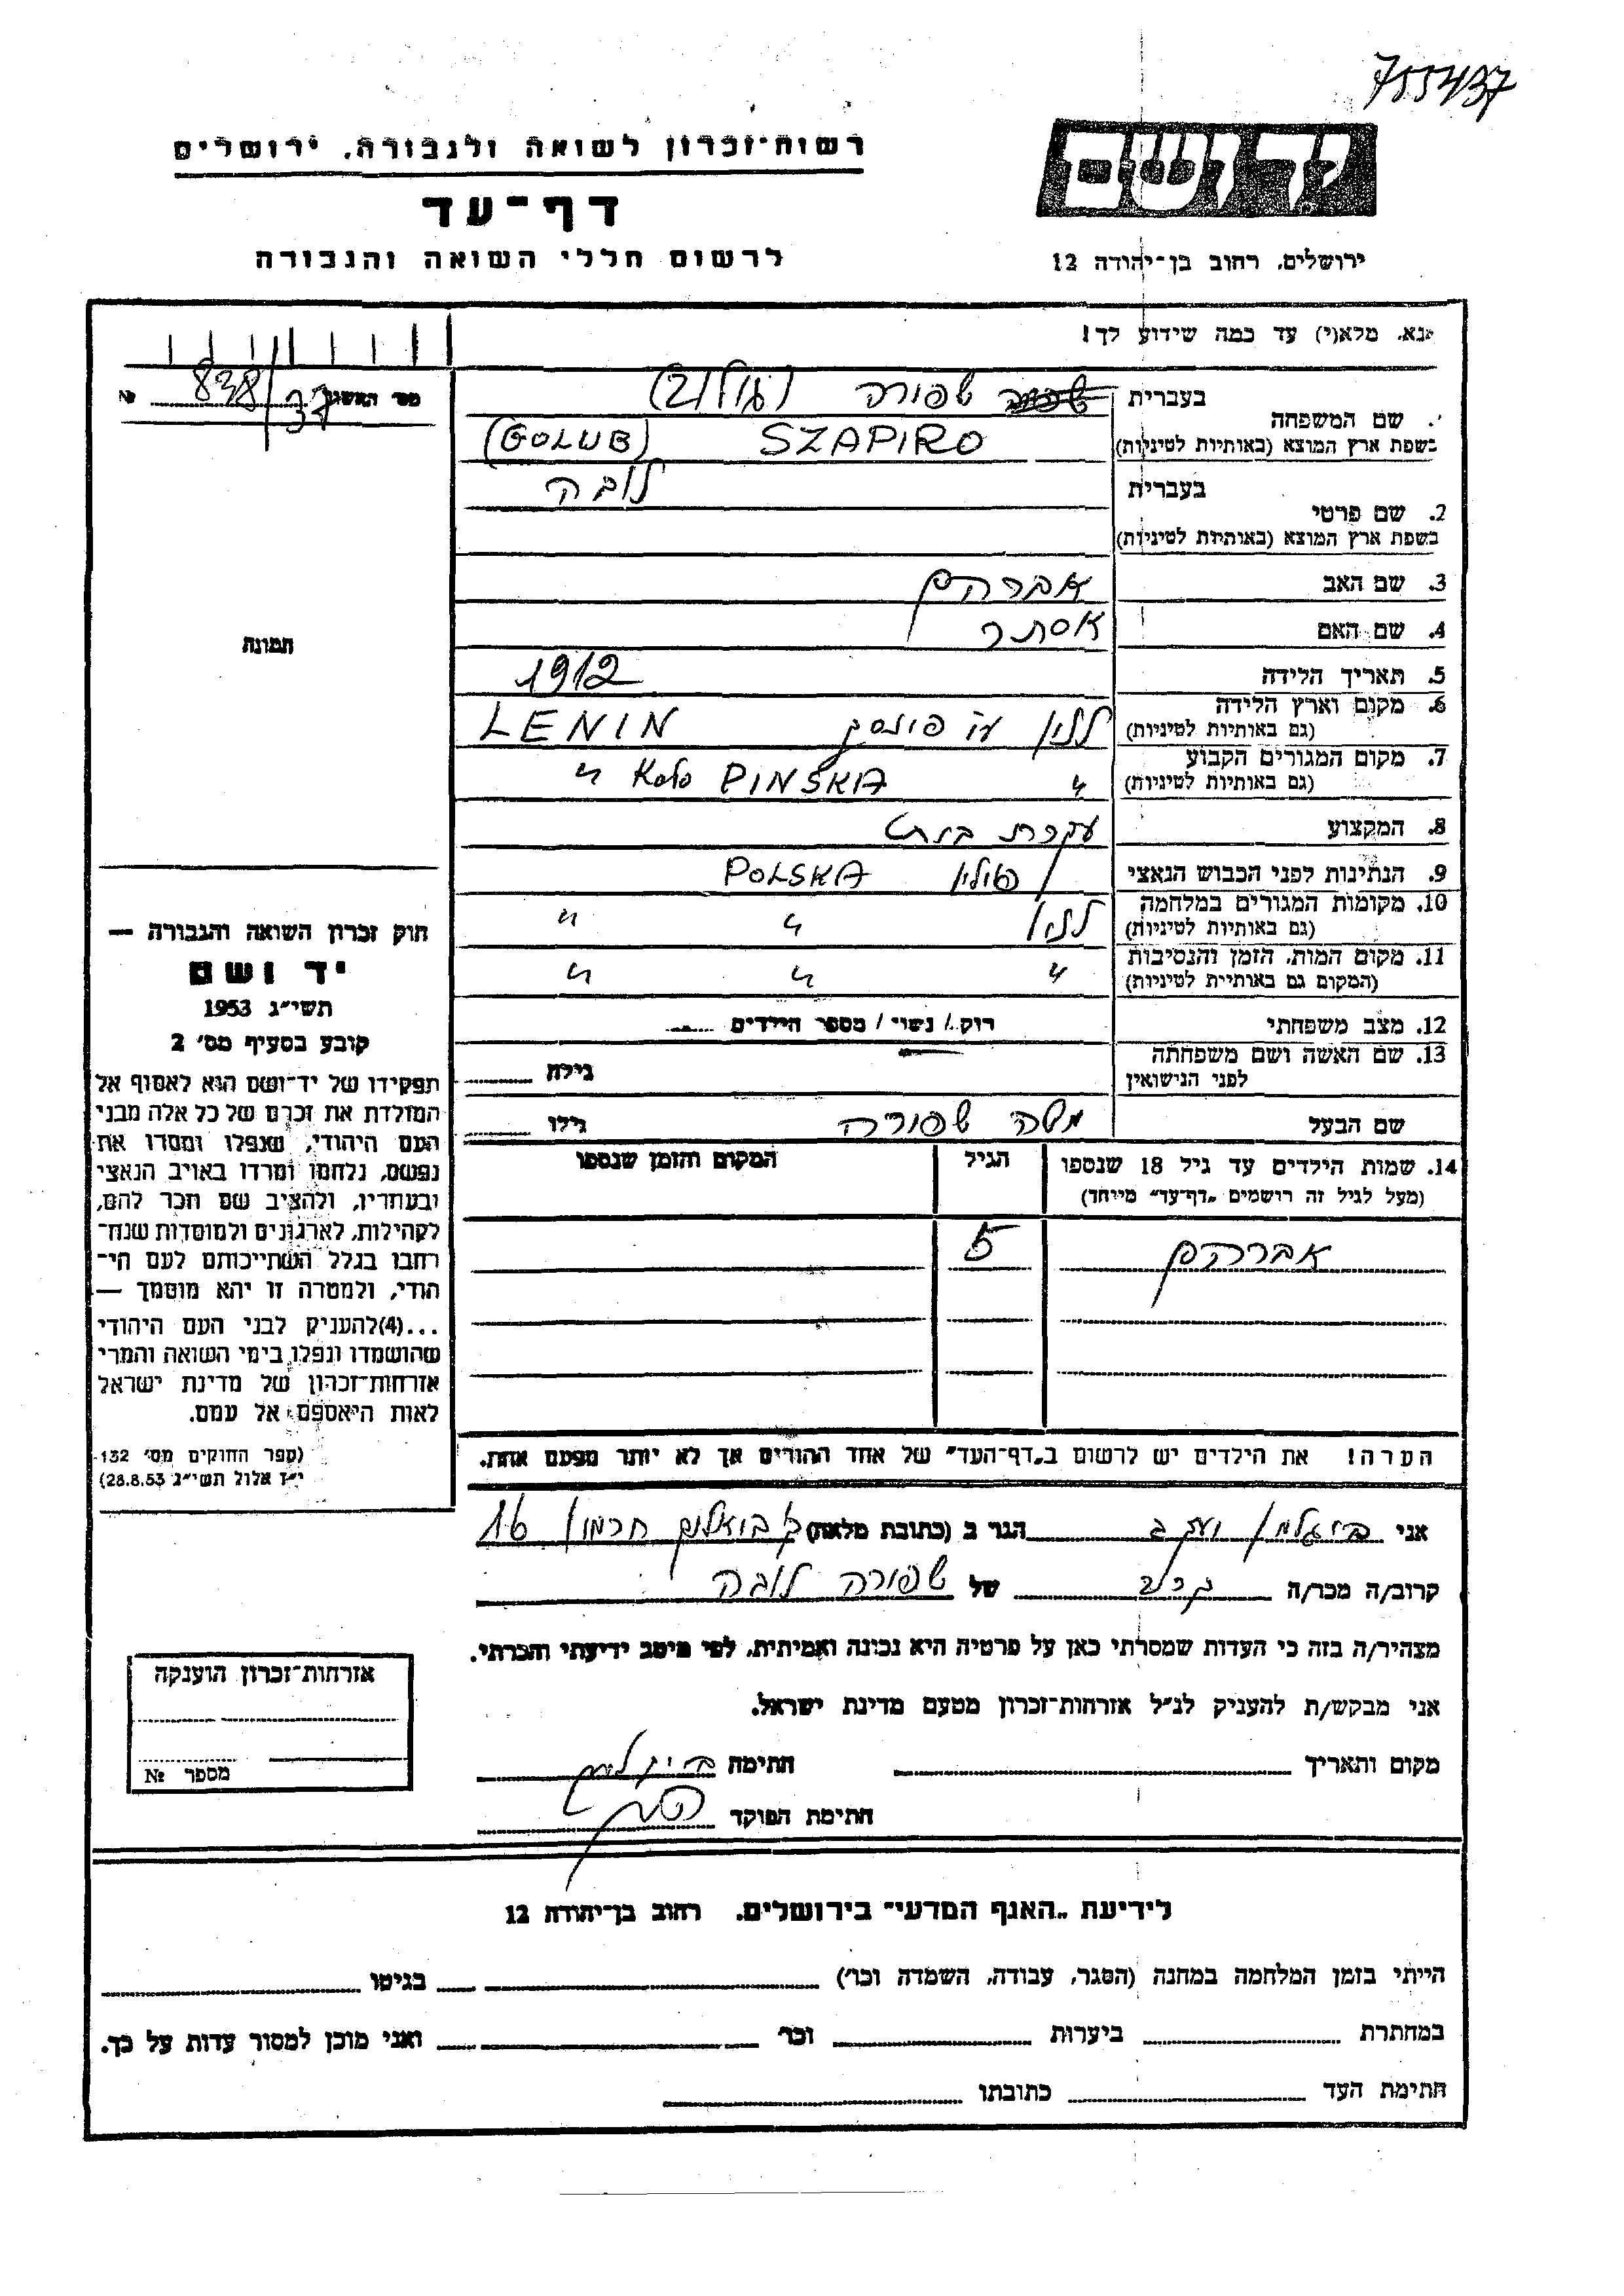 755437
ידושם
ירושלים. רחוב בן־יהודה 12
רשות־זכרון לשואה ולגבורה. ירושלים
דף־עד
לרשום חללי השואה והגבורה
נא. מלא(י) עד כמה שידוע לך!
№ 838/37
בעברית
שם המשפחה
שפורה
בשפת ארץ המוצא (באותיות לטיניות)
SZAPIRO (GOLUB)
בעברית
2. שם פרטי
לובה
בשפת ארץ המוצא (באותיות לטיניות)
3. שם האב אברהם
4. שם האם אסתר
5. תאריך הלידה 1912
6. מקום וארץ הלידה
(גם באותיות לטיניות)
לנין ע"י פינסק LENIN
7. מקום המגורים הקבוע
(גם באותיות לטיניות)
" KOŁO PINSKA "
8. המקצוע עקרת בית
9. הנתינות לפני הכבוש הנאצי פולין POLSKA
10. מקומות המגורים במלחמה
(גם באותיות לטיניות)
לנין " "
11. מקום המות. הזמן והנסיבות
(המקום גם באותיית לטיניות)
" " "
12. מצב משפחתי
רוק / נשוי / מספר הילדים
13. שם האשה ושם משפחתה
לפני הנישואין
גילה
שם הבעל משה שפורה גילו
14. שמות הילדים עד גיל 18 שנספו
(מעל לגיל זה רושמים „דף־עד" מייוחד)
הגיל
המקום והזמן שנספו
אברהם 5
הערה! את הילדים יש לרשום ב„דף־העד" של אחד ההורים אך לא יותר מפעם אחת.
תמונה
חוק זכרון השואה והגבורה —
יד ושם
תשי״ג 1953
קובע בסעיף מס׳ 2
תפקידו של יד־ושם הוא לאסוף אל
המולדת את זכרם של כל אלה מבני
העם היהודי, שנפלו ומסרו את
נפשם, נלחמו ומרדו באויב הנאצי
ובעוזריו, ולהציב שם וזכר להם,
לקהילות, לארגונים ולמוסדות שנח־
רחבו בגלל השתייכותם לעם הי־
הודי, ולמטרה זו יהא מוסמך —
...(4)להעניק לבני העם היהודי
שהושמדו ונפלו בימי השואה והמרי
אזרחות־זכרון של מדינת ישראל
לאות היאספם אל עמם.
(ספר החוקים מס׳ 132
י״ז אלול תשי״ג 28.8.53)
אני הגר ב (כתובת מלאה) 16
קרוב/ה מכר/ה של שפורה לובה
מצהיר/ה בזה כי העדות שמסרתי כאן על פרטיה היא נכונה ואמיתית, לפי מיטב ידיעתי והכרתי.
אני מבקש/ת להעניק לנ״ל אזרחות־זכרון מטעם מדינת ישראל.
מקום ותאריך חתימה
חתימת הפוקד
אזרחות־זכרון הוענקה
מספר №
לידיעת „האגף המדעי" בירושלים. רחוב בן־יהודה 12
הייתי בזמן המלחמה במחנה (הסגר, עבודה, השמדה וכו׳) בגיטו
במחתרת ביערות וכו׳ ואני מוכן למסור עדות על כך.
חתימת העד כתובתו